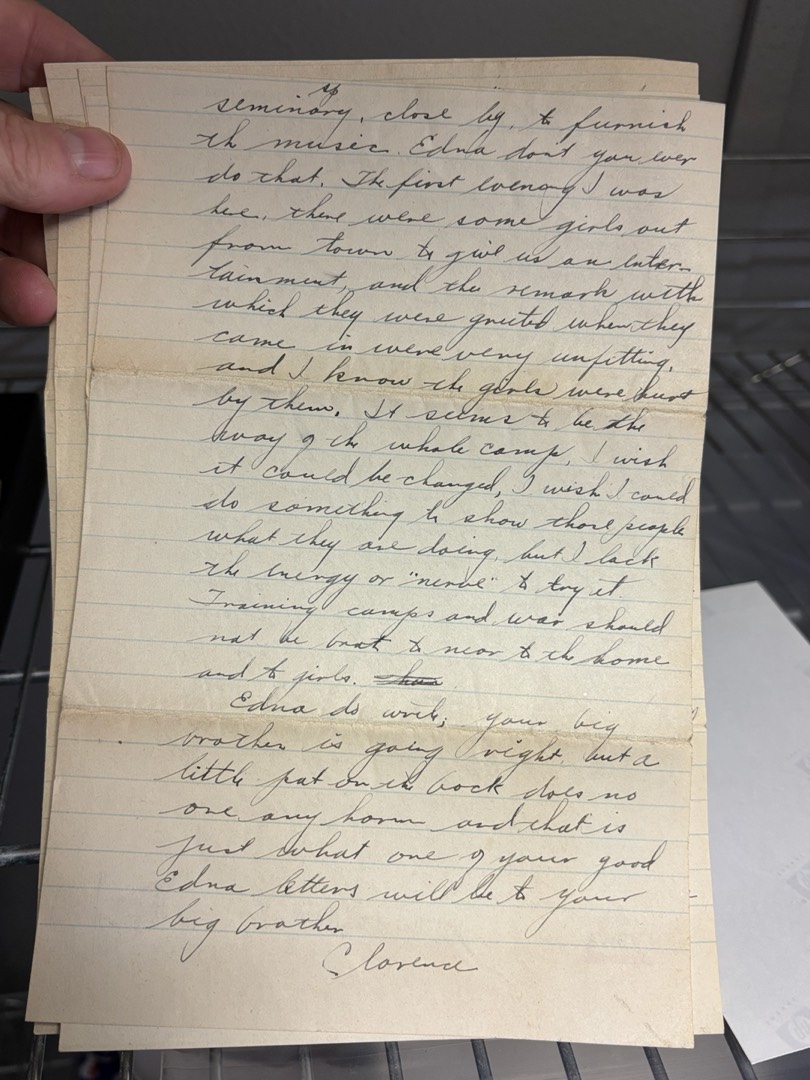 sp
seminary, close by, to furnish
th music. Edna don't you ever
do that. The first evening I was
here, there were some girls out
from town to give us an enter-
tainment, and the remark with
which they were greeted when they
came in were very unfitting,
and I know the girls were hurt
by them. It seems to be the
way of the whole camp, I wish
it could be changed, I wish I could
do something to show those people
what they are doing, but I lack
the energy or "nerve" to try it.
Training camps and war should
not be brot to near to th home
and to girls.
Edna do write; your big
brother is going right, but a
little pat on th back does no
one any harm and that is
just what one of your good
Edna letters will be to your
big brother
Clarence